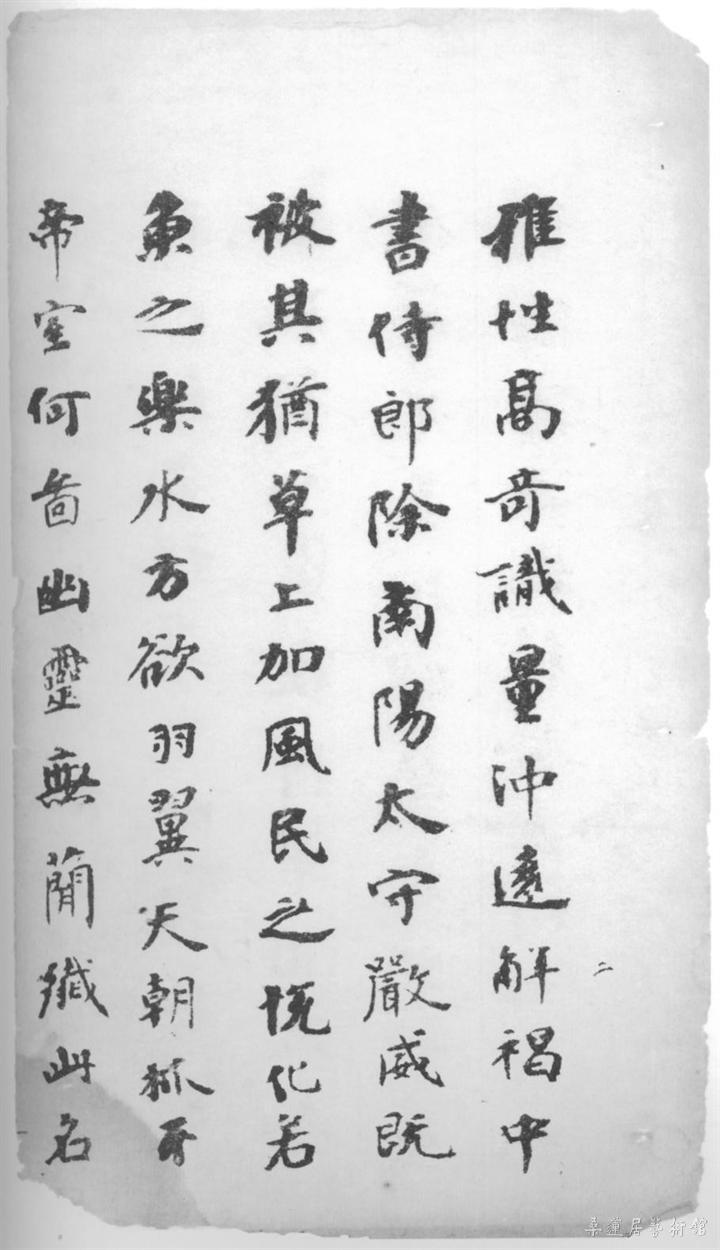 雅性高奇識量沖遠解褐中
書侍郎除南陽太守嚴威既
被其猶草上加風民之悦化若
魚之樂水方欲羽翼天朝抓牙
帝室何啚幽靈無蕳殱此名
二
桑蓮居藝術館